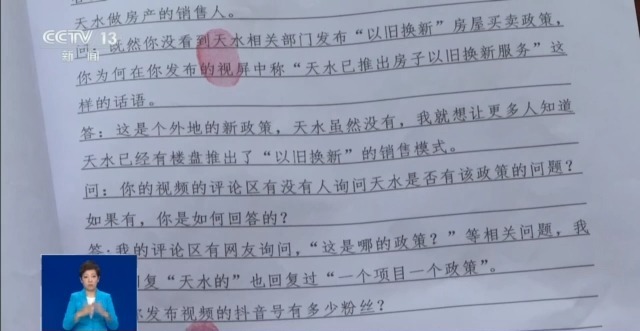 天水做房产的销售人。
CCTV 13
新闻
问：既然你没看到天水相关部门发布“以旧换新”房屋买卖政策，
你为何在你发布的视屏中称“天水已推出房子以旧换新服务”这
样的话语。
答：这是个外地的新政策，天水虽然没有，我就想让更多人知道
天水已经有楼盘推出了“以旧换新”的销售模式。
问：你的视频的评论区有没有人询问天水是否有该政策的问题？
如果有，你是如何回答的？
答：我的评论区有网友询问，“这是哪的政策？”等相关问题，我
回复“天水的”也回复过“一个项目一个政策”。
你发布视频的抖音号有多少粉丝？